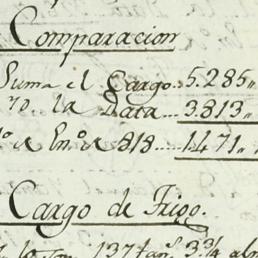 Comparacion
Suma el Cargo.. 5.285,,
la Data.... 3.813,,
En.º de 818.... 1471,,
Cargo de Trigo.
137 fan.s 3¾ alm